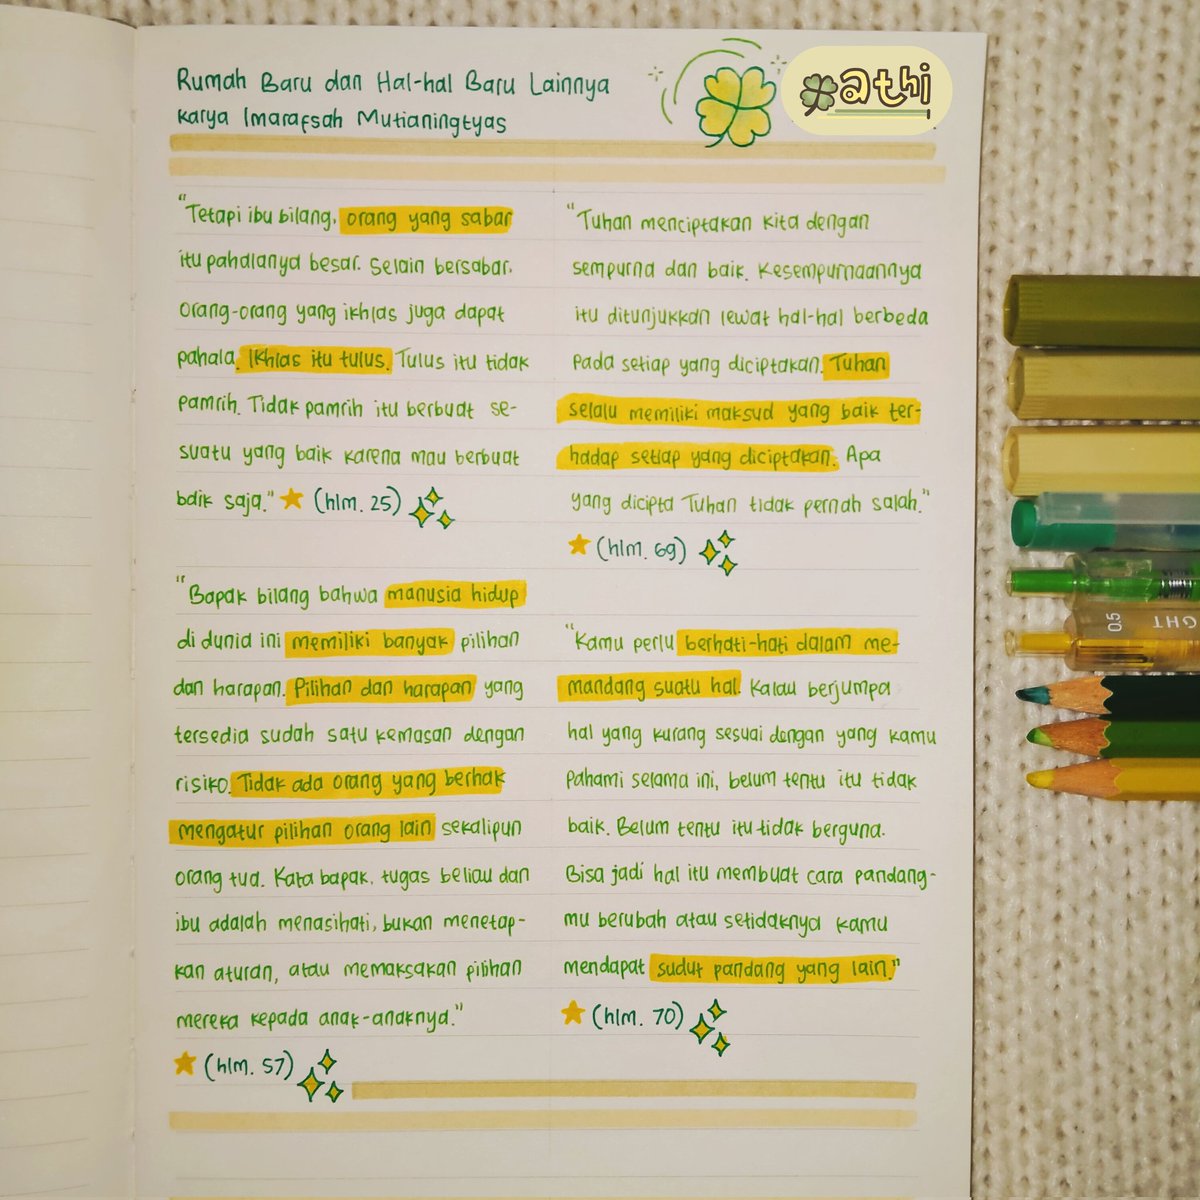 Rumah Baru dan Hal-hal Baru Lainnya
karya Imarafsah Mutianingtyas
athi
"Tetapi ibu bilang, orang yang sabar
itu pahalanya besar. Selain bersabar,
orang-orang yang ikhlas juga dapat
pahala. Ikhlas itu tulus. Tulus itu tidak
pamrih. Tidak pamrih itu berbuat se-
suatu yang baik karena mau berbuat
baik saja." (hlm. 25)
"Bapak bilang bahwa manusia hidup
di dunia ini memiliki banyak pilihan
dan harapan. Pilihan dan harapan yang
tersedia sudah satu kemasan dengan
risiko. Tidak ada orang yang berhak
mengatur pilihan orang lain sekalipun
orang tua. Kata bapak, tugas beliau dan
ibu adalah menasihati, bukan menetap-
kan aturan, atau memaksakan pilihan
mereka kepada anak-anaknya."
(hlm. 57)
"Tuhan menciptakan kita dengan
sempurna dan baik. Kesempurnaannya
itu ditunjukkan lewat hal-hal berbeda
pada setiap yang diciptakan. Tuhan
selalu memiliki maksud yang baik ter-
hadap setiap yang diciptakan. Apa
yang dicipta Tuhan tidak pernah salah."
(hlm. 69)
"Kamu perlu berhati-hati dalam me-
mandang suatu hal. Kalau berjumpa
hal yang kurang sesuai dengan yang kamu
pahami selama ini, belum tentu itu tidak
baik. Belum tentu itu tidak berguna.
Bisa jadi hal itu membuat cara pandang-
mu berubah atau setidaknya kamu
mendapat sudut pandang yang lain."
(hlm. 70)
0.5
GHT